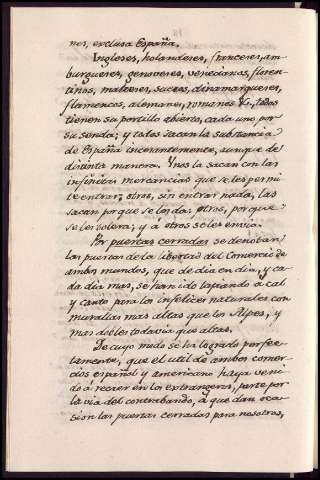 nes, exclusa España.
Ingleses, holandeses, franceses, am-
burgueses, genoveses, venecianos, floren-
tinos, malteses, suecos, dinamarqueses,
flamencos, alemanes, romanos &c., todos
tienen su portillo abierto, cada uno por
su senda; y todos sacan la substancia
de España incesantemente, aunque de
distinta manera. Unos la sacan con las
infinitas mercancias que se les permi-
te entrar; otros, sin entrar nada, las
sacan porque se los da; otros, porque
se les tolera; y á otros se les envia.
Por puertas cerradas se denotan
las puertas de la libertad del Comercio de
ambos mundos, que de dia en dia, y ca-
da dia mas, se han ido tapiando á cal
y canto para los infelices naturales con
murallas mas altas que los Alpes, y
mas dobles todavia que altas.
De cuyo modo se ha logrado perfec-
tamente, que el util de ambos comer-
cios español y americano haya veni-
do á recaer en los extrangeros, parte por
la via del contrabando, á que dan oca-
sion las puertas cerradas para nosotros,